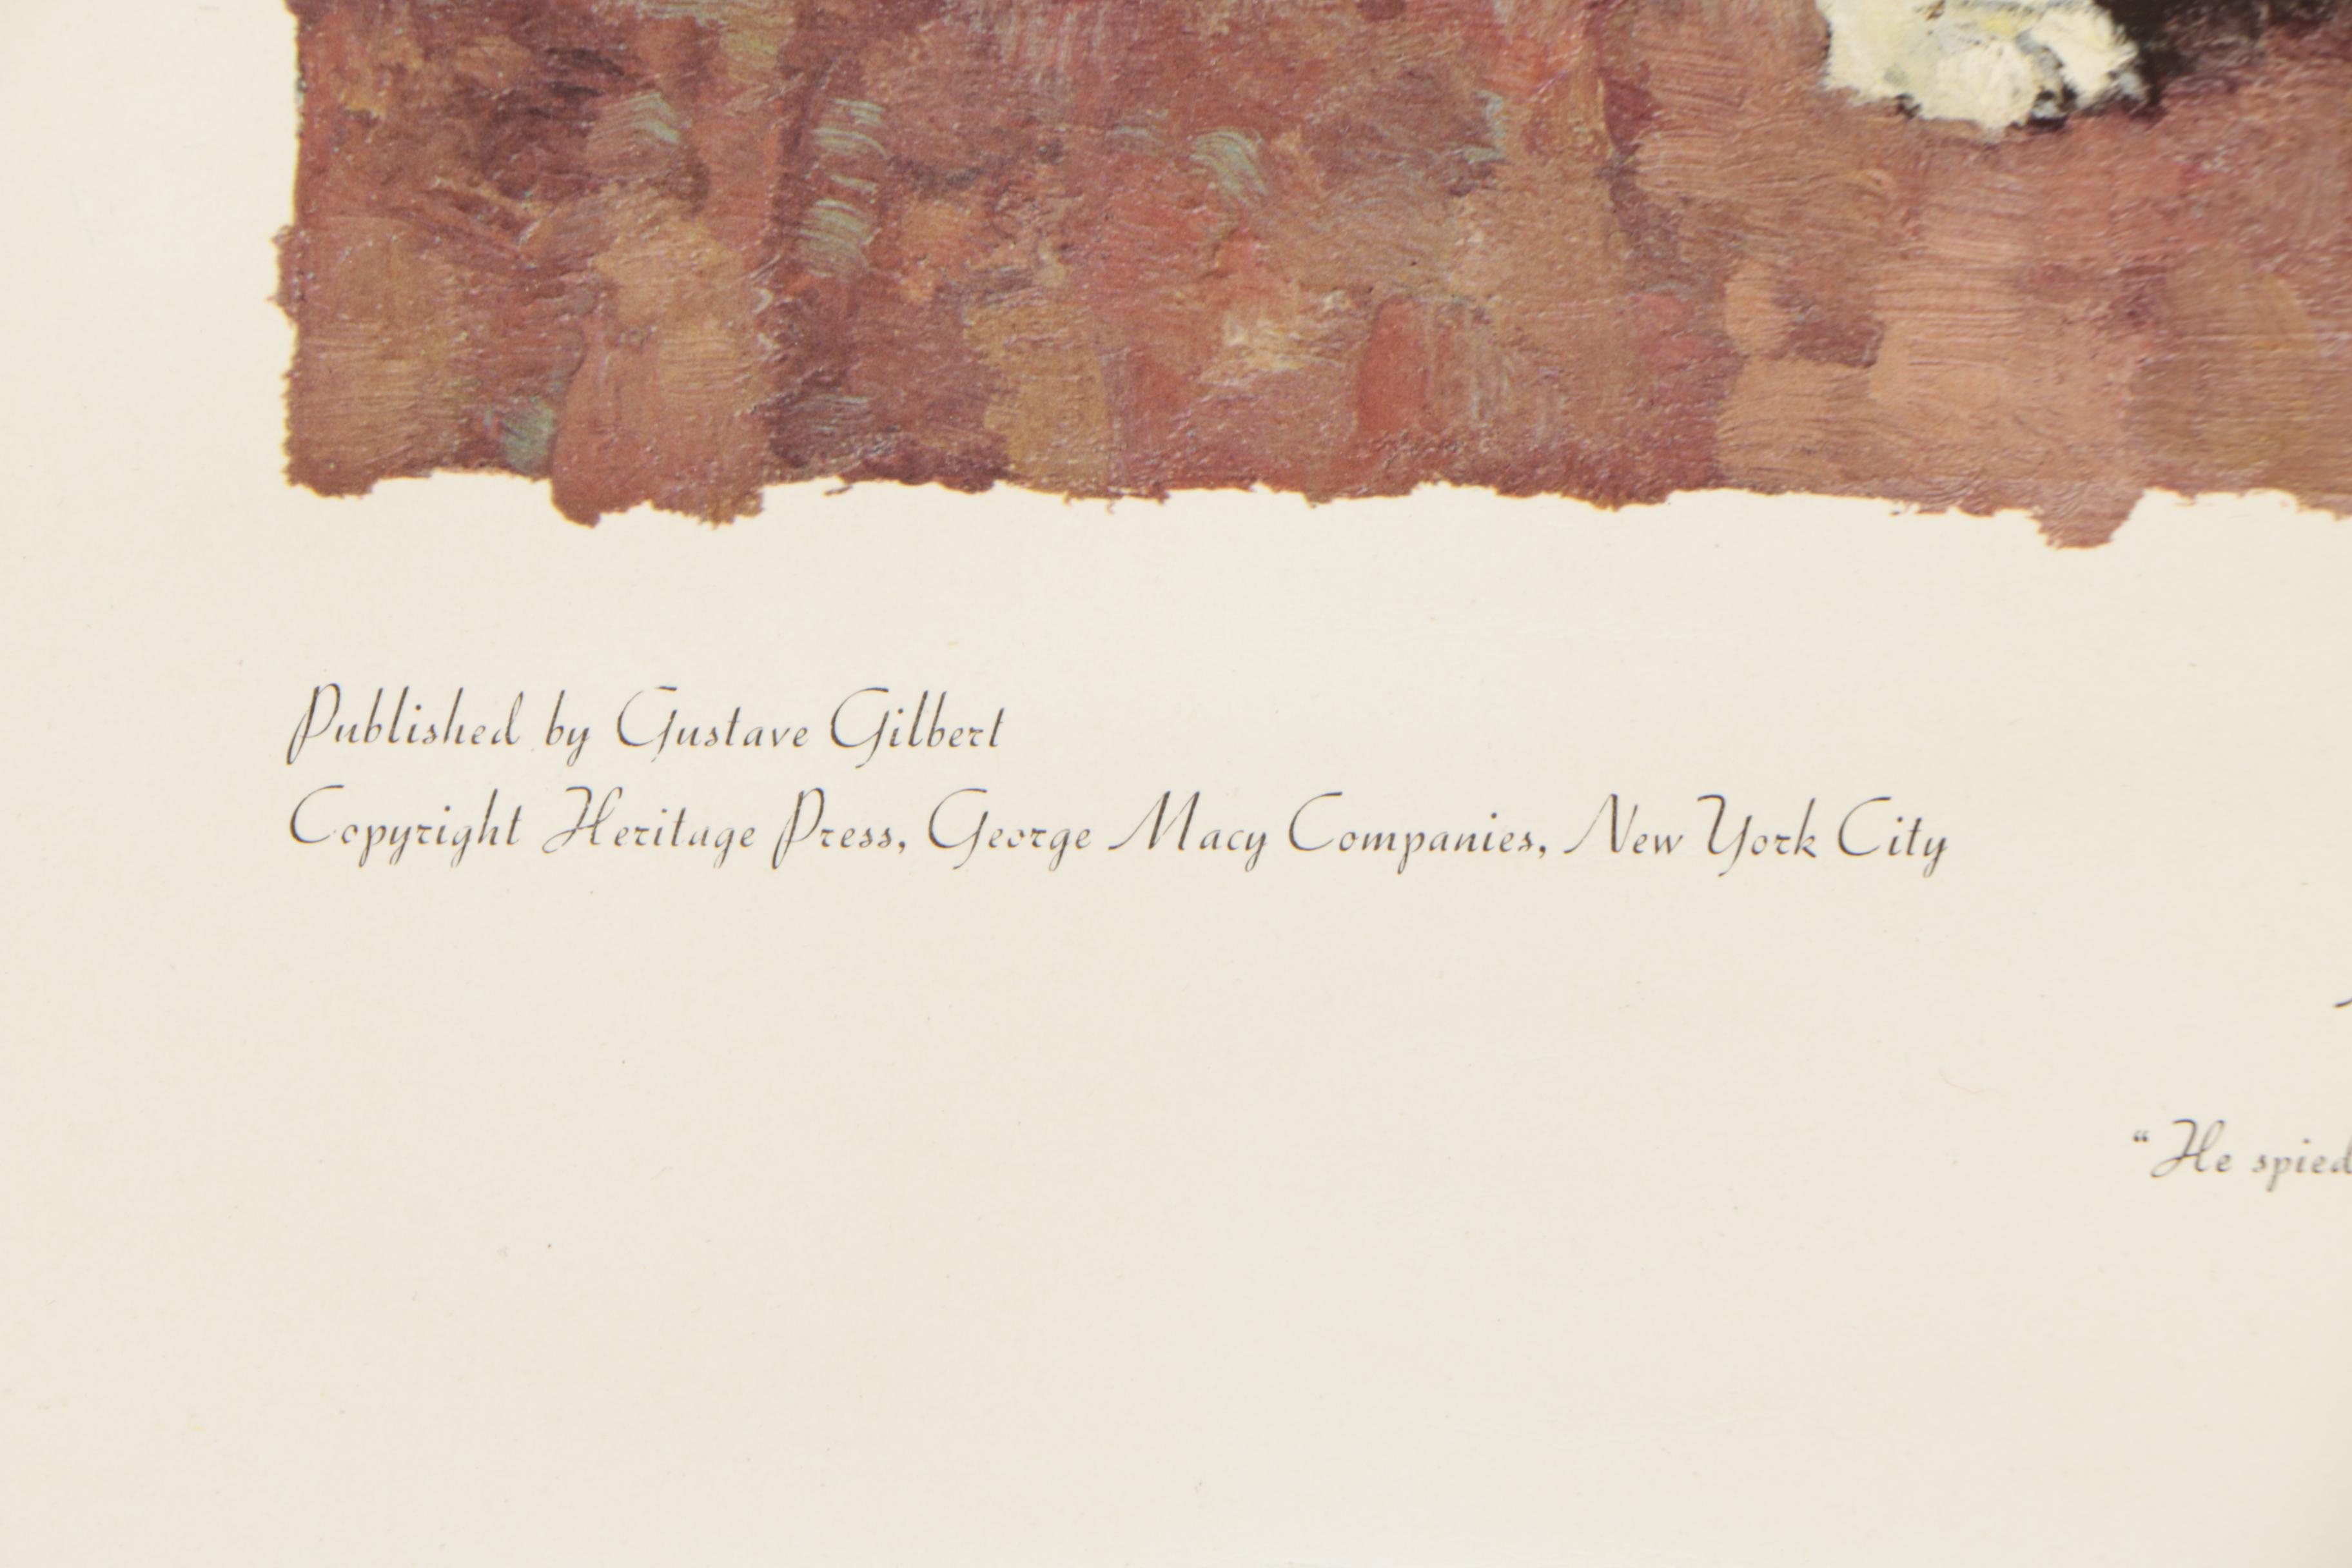 Published by Gustave Gilbert
Copyright Heritage Press, George Macy Companies, New York City
“He spied